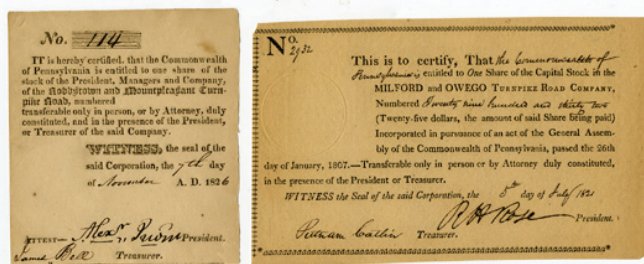 No. 114
IT is hereby certified, that the Commonwealth
of Pennsylvania is entitled to one share of the
stock of the President, Managers and Company,
of the Roddytown and Mountpleasant Turn-
pike Road, numbered
transferable only in person, or by Attorney, duly
constituted, and in the presence of the President,
or Treasurer of the said Company.
WITNESS, the seal of the
said Corporation, the 7th day
of November A. D. 1826
ATTEST— Alexr. President.
James Bell Treasurer.
No. 2932
This is to certify, That the Commonwealth of
Pennsylvania is entitled to One Share of the Capital Stock in the
MILFORD and OWEGO TURNPIKE ROAD COMPANY,
Numbered Twenty nine hundred and thirty two
(Twenty-five dollars, the amount of said Share being paid)
Incorporated in pursuance of an act of the General Assem-
bly of the Commonwealth of Pennsylvania, passed the 26th
day of January, 1807.—Transferable only in person or by Attorney duly constituted,
in the presence of the President or Treasurer.
WITNESS the Seal of the said Corporation, the 5th day of July 1821
R H Rose President.
Putnam Catlin Treasurer.